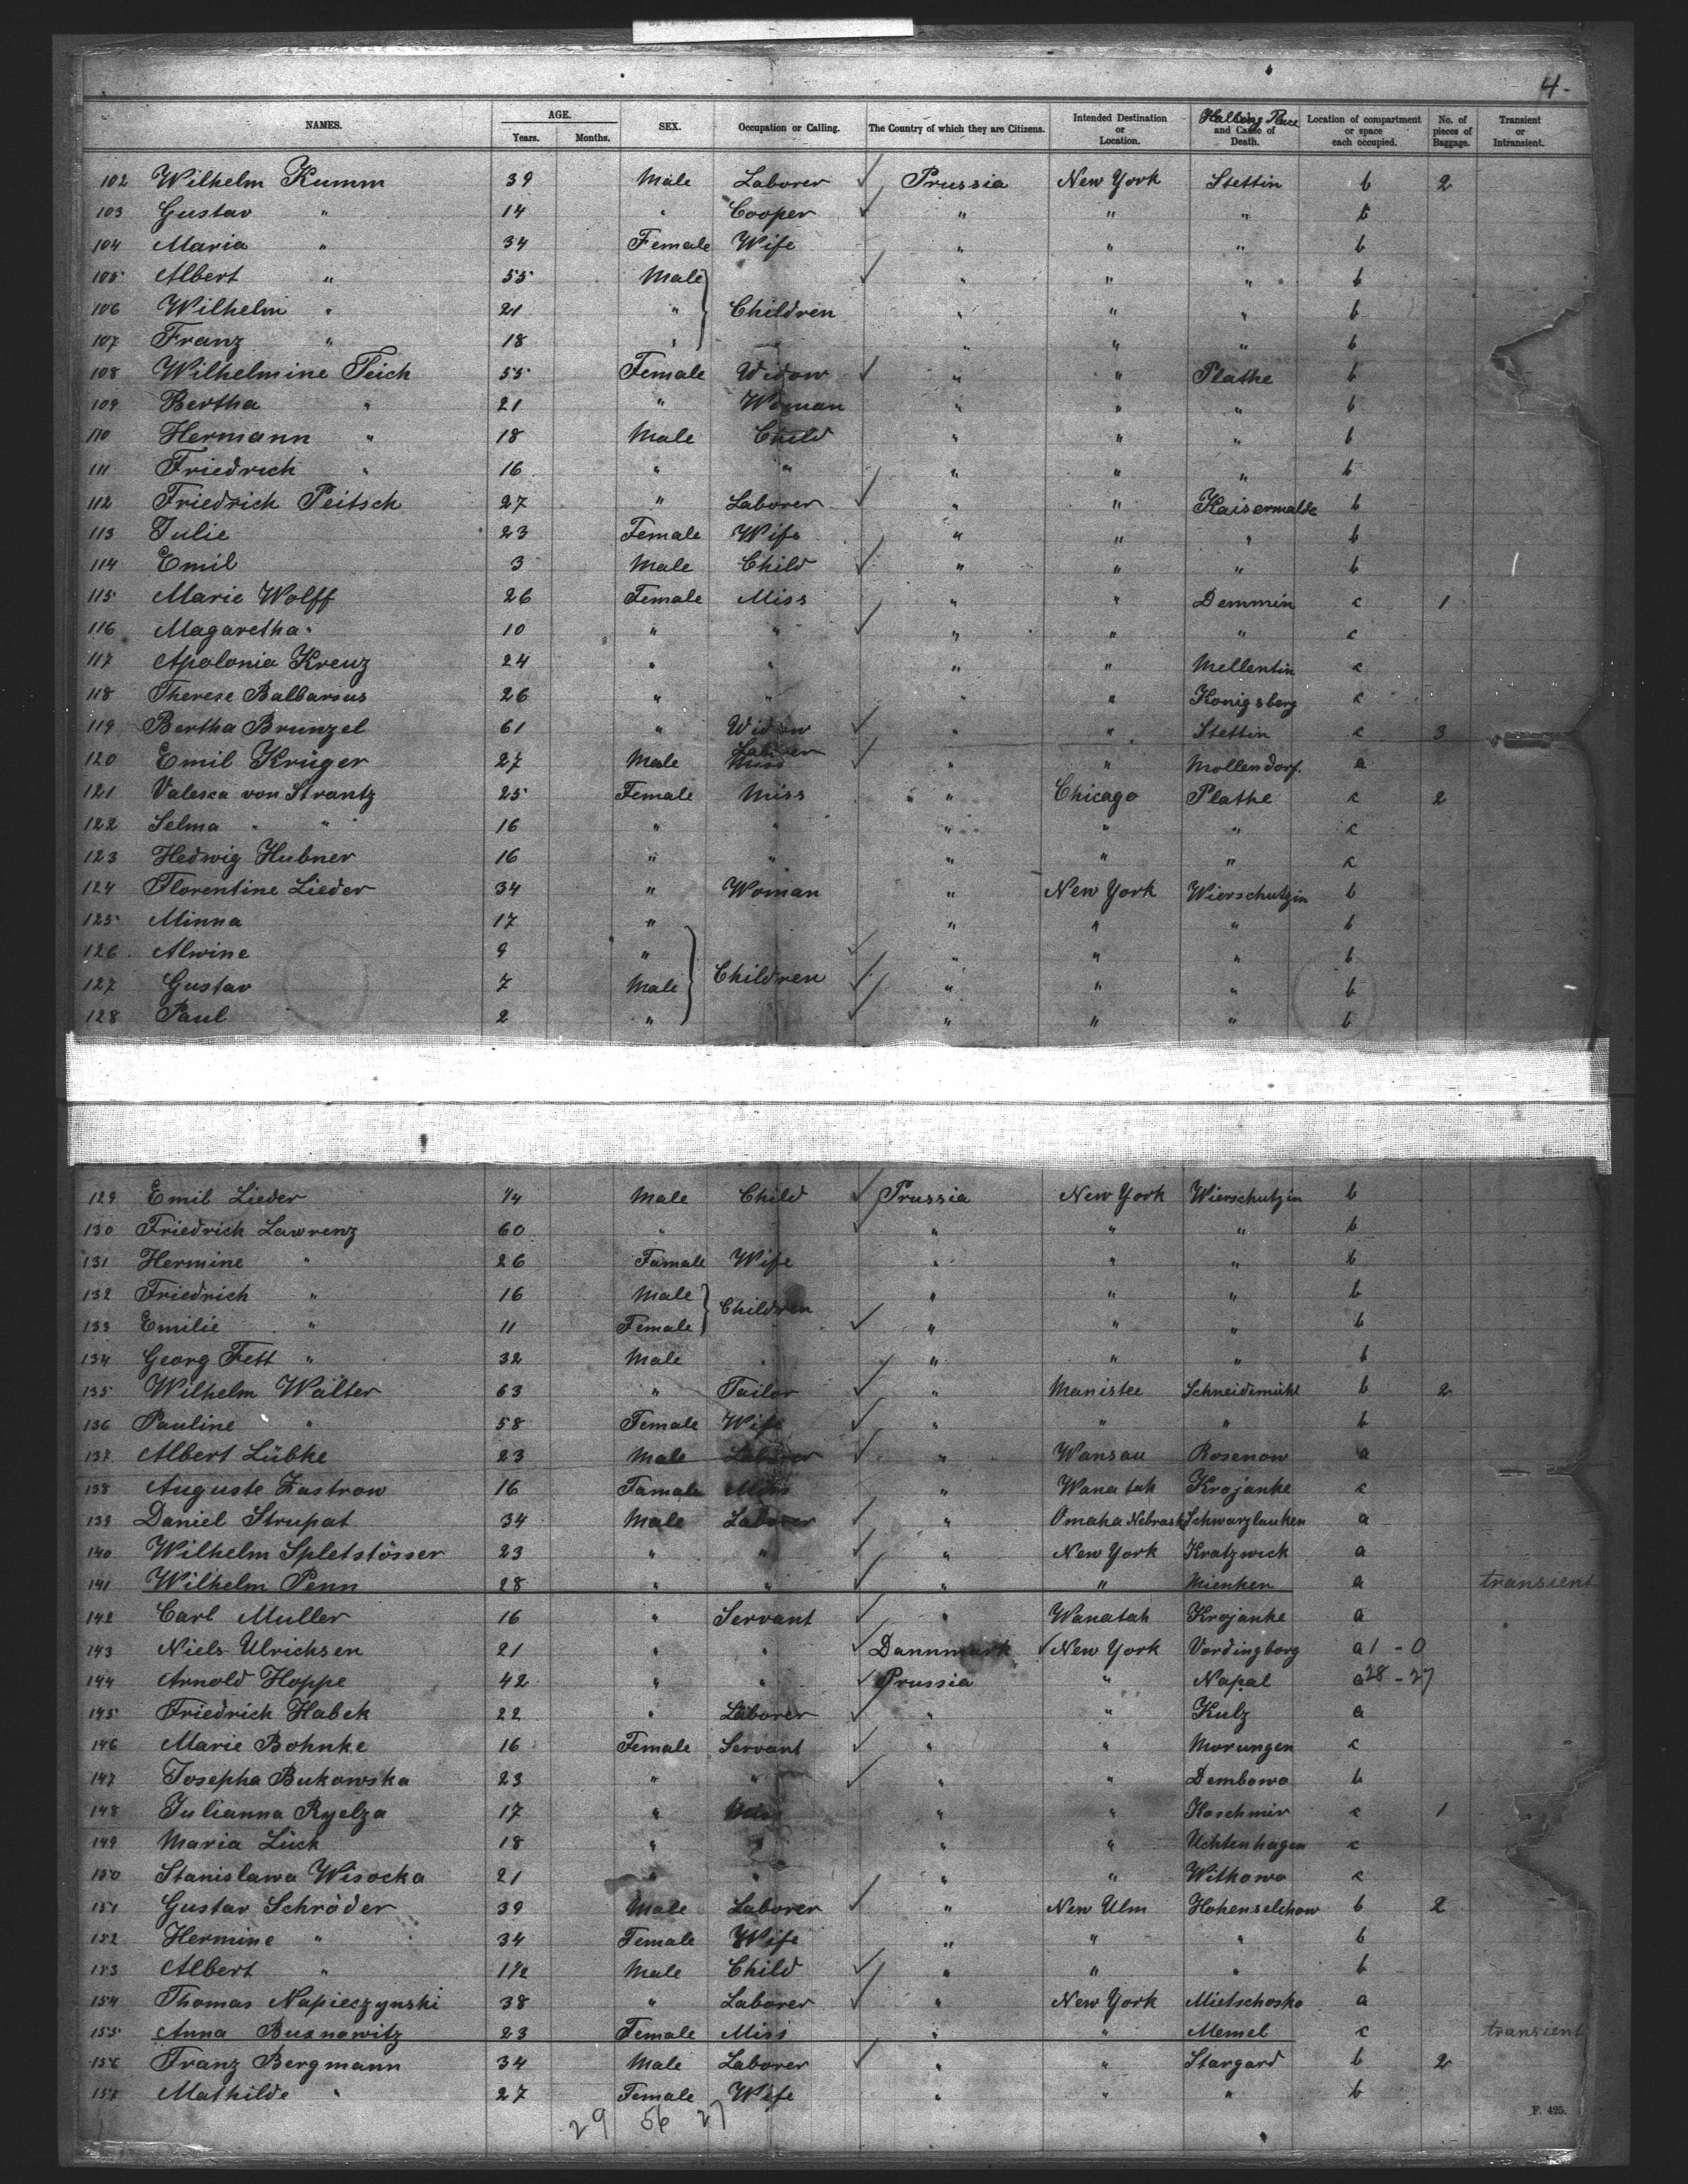 4.
NAMES. AGE. Years. Months. SEX. Occupation or Calling. The Country of which they are Citizens. Intended Destination or Location. Place and Cause of Death. Location of compartment or space each occupied. No. of pieces of Baggage. Transient or Intransient.
102 Wilhelm Kumm 39 Male Laborer ✓ Prussia New York Stettin b 2
103 Gustav " 14 " Cooper ✓ " " " b
104 Maria " 34 Female Wife " " " b
105 Albert " 55 Male ✓ " " " b
106 Wilhelm " 21 " Children " " " b
107 Franz " 18 " " " " b
108 Wilhelmine Teich 55 Female Widow ✓ " " Plathe b
109 Bertha " 21 " Woman " " " b
110 Hermann " 18 Male Child " " " b
111 Friedrich " 16 " " " " " b
112 Friedrich Peitsch 27 " Laborer ✓ " " Kaiserwalde b
113 Julie 23 Female Wife " " " b
114 Emil 3 Male Child ✓ " " " b
115 Marie Wolff 26 Female Miss " " Demmin c 1
116 Magaretha " 10 " " ✓ " " " c
117 Apolonia Kreuz 24 " " " " Mellentin c
118 Therese Balbarsus 26 " " " " Konigsberg c
119 Bertha Brunzel 61 " Widow ✓ " " Stettin c 3
120 Emil Krüger 27 Male Laborer Miss ✓ " " Mollendorf. a
121 Valesca von Strantz 25 Female Miss " Chicago Plathe c 2
122 Selma " " 16 " " " " " c
123 Hedwig Hubner 16 " " " " " c
124 Florentine Lieder 34 " Woman " New York Wierschutzin b
125 Minna 17 " " " " b
126 Alwine 9 " ✓ " " " b
127 Gustav 7 Male Children ✓ " " " b
128 Paul 2 " ✓ " " " b
129 Emil Lieder 1/4 Male Child ✓ Prussia New York Wierschutzin b
130 Friedrich Lawrenz 60 " ✓ " " " b
131 Hermine " 26 Famale Wife " " " b
132 Friedrich " 16 Male Children " " " b
133 Emilie " 11 Female ✓ " " " b
134 Georg Fett " 32 Male " ✓ " " " b
135 Wilhelm Walter 63 " Tailor ✓ " Manistee Schneidemühl b 2
136 Pauline " 58 Female Wife ✓ " " " b
137 Albert Lübke 23 Male Laborer ✓ " Wansau Rosenow a
138 Auguste Zastrow 16 Famale Miss " Wanatah Krojanke c
139 Daniel Strupat 34 Male Laborer ✓ " Omaha Nebrask Schwarzlauken a
140 Wilhelm Spletstösser 23 " " ✓ " New York Kratzwick a
141 Wilhelm Penn 28 " " ✓ " " Mienken a transient
142 Carl Muller 16 " Servant ✓ " Wanatah Krojanke a
143 Niels Ulrichsen 21 " " ✓ Dannmark ✓ New York Vordingborg a 1 - 0
144 Arnold Hoppe 42 " " ✓ Prussia " Napal a 28 - 27
145 Friedrich Habek 22 " Laborer ✓ " " Kulz a
146 Marie Bohnke 16 Female Servant ✓ " " Morungen c
147 Josepha Bukowska 23 " " ✓ " " Dembowo b
148 Julianna Ryelza 17 " Miss " " Koschmir c 1
149 Maria Lück 18 " " " " Uchtenhagen c
150 Stanislawa Wisocka 21 " " " " Witkowo c
151 Gustav Schröder 39 Male Laborer ✓ " New Ulm Hohenselchow b 2
152 Hermine " 34 Female Wife " " " b
153 Albert " 1 1/2 Male Child ✓ " " " b
154 Thomas Napieczynski 38 " Laborer ✓ " New York Mietschosko a
155 Anna Busnowitz 23 Female Miss " " Memel c transient
156 Franz Bergmann 34 Male Laborer ✓ " " Stargard b 2
157 Mathilde " 27 Female Wife " " " b
29 56 27
F. 425.